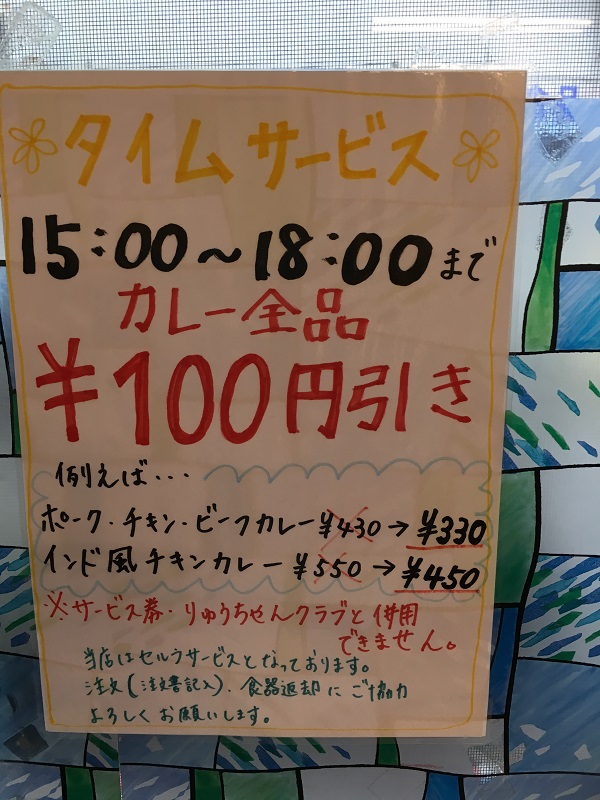 タイムサービス
15:00~18:00まで
カレー全品
¥100円引き
例えば・・・
ポーク・チキン・ビーフカレー ¥430→¥330
インド風チキンカレー ¥550→¥450
※サービス券・りゅうちゃんクラブと併用
できません。
当店はセルフサービスとなっております。
注文(注文書記入)・食器返却にご協力
よろしくお願いします。